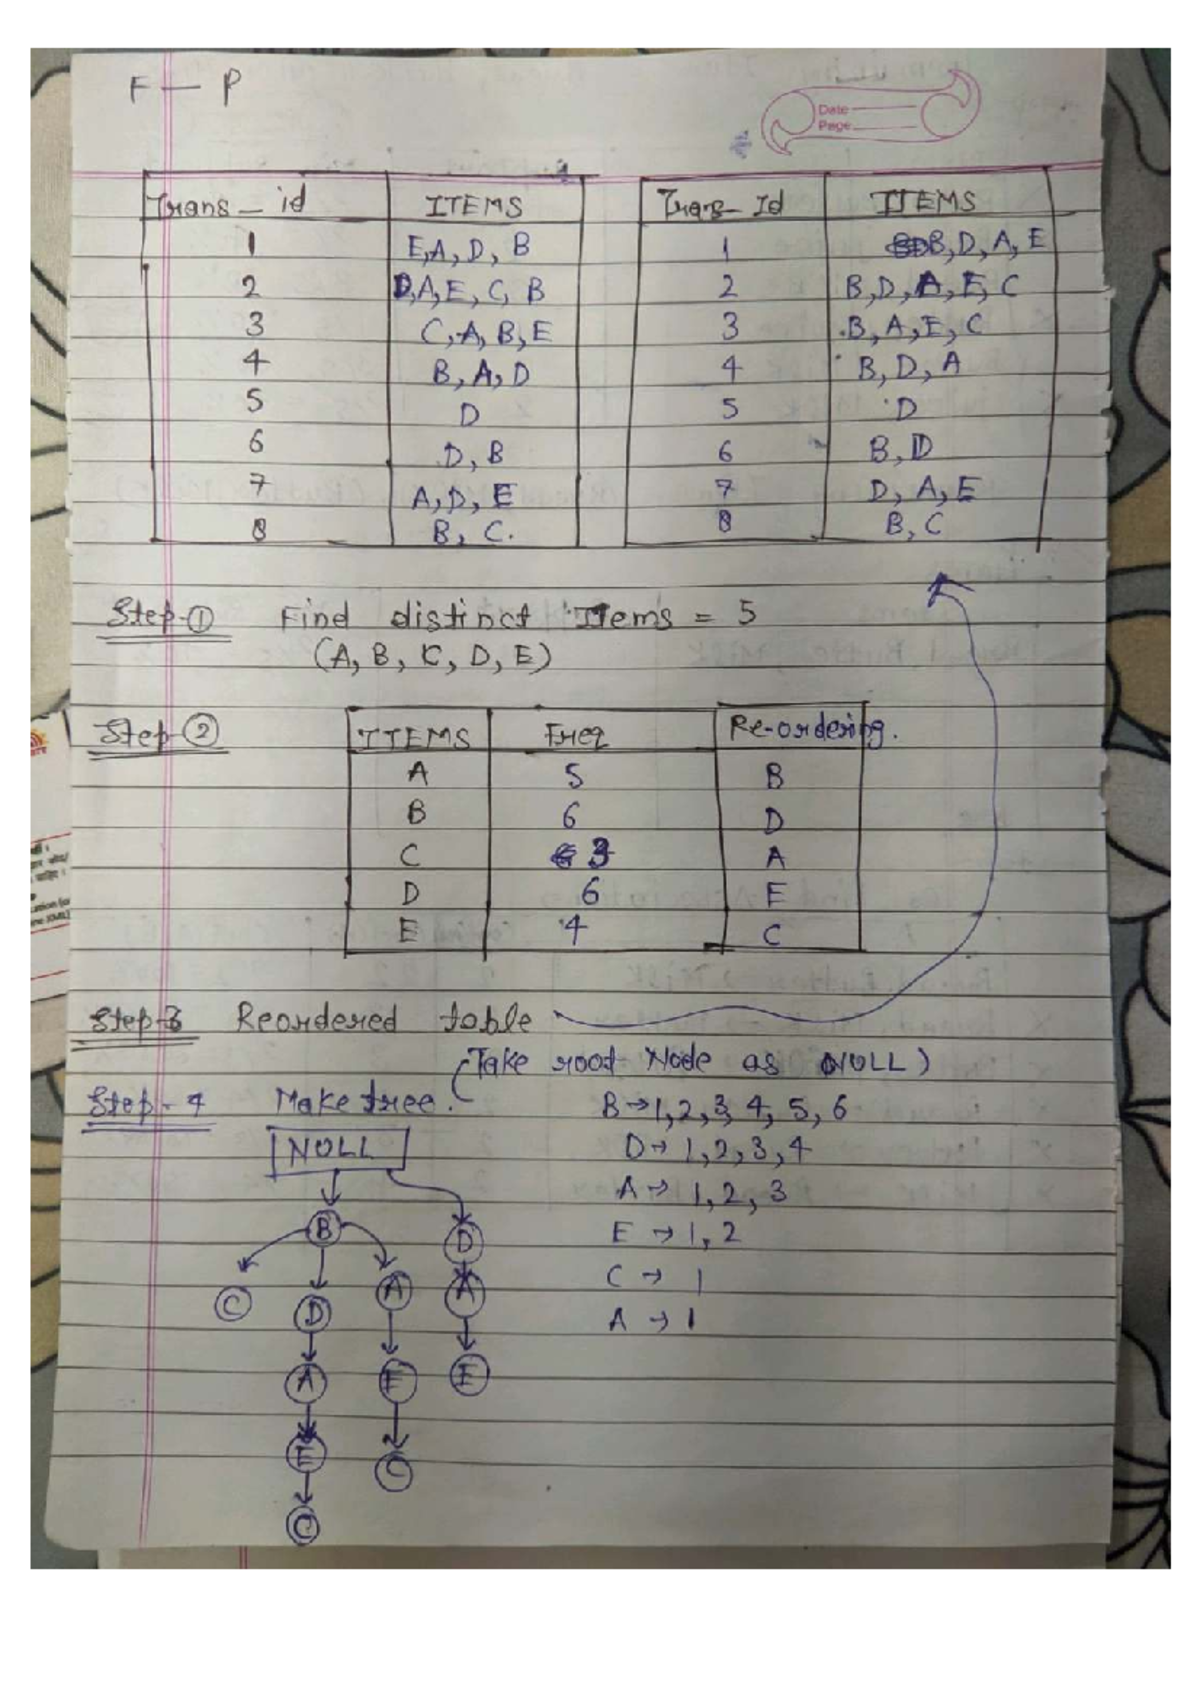 F - P
Date
Page
Trans_id ITEMS Trans_Id ITEMS
1 E,A,D,B 1 B,D,A,E
2 D,A,E,C,B 2 B,D,A,E,C
3 C,A,B,E 3 B,A,E,C
4 B,A,D 4 B,D,A
5 D 5 D
6 D,B 6 B,D
7 A,D,E 7 D,A,E
8 B,C. 8 B,C
Step-① Find distinct Items = 5
(A, B, C, D, E)
Step-② ITEMS Freq Re-ordering.
A 5 B
B 6 D
C 3 A
D 6 E
E 4 C
Step-3 Reordered table
(Take root Node as NULL)
Step-4 Make tree.
B→1,2,3,4,5,6
NULL
D→1,2,3,4
A→1,2,3
B D
E→1,2
C D A A
C→1
A→1
A E E
E C
C